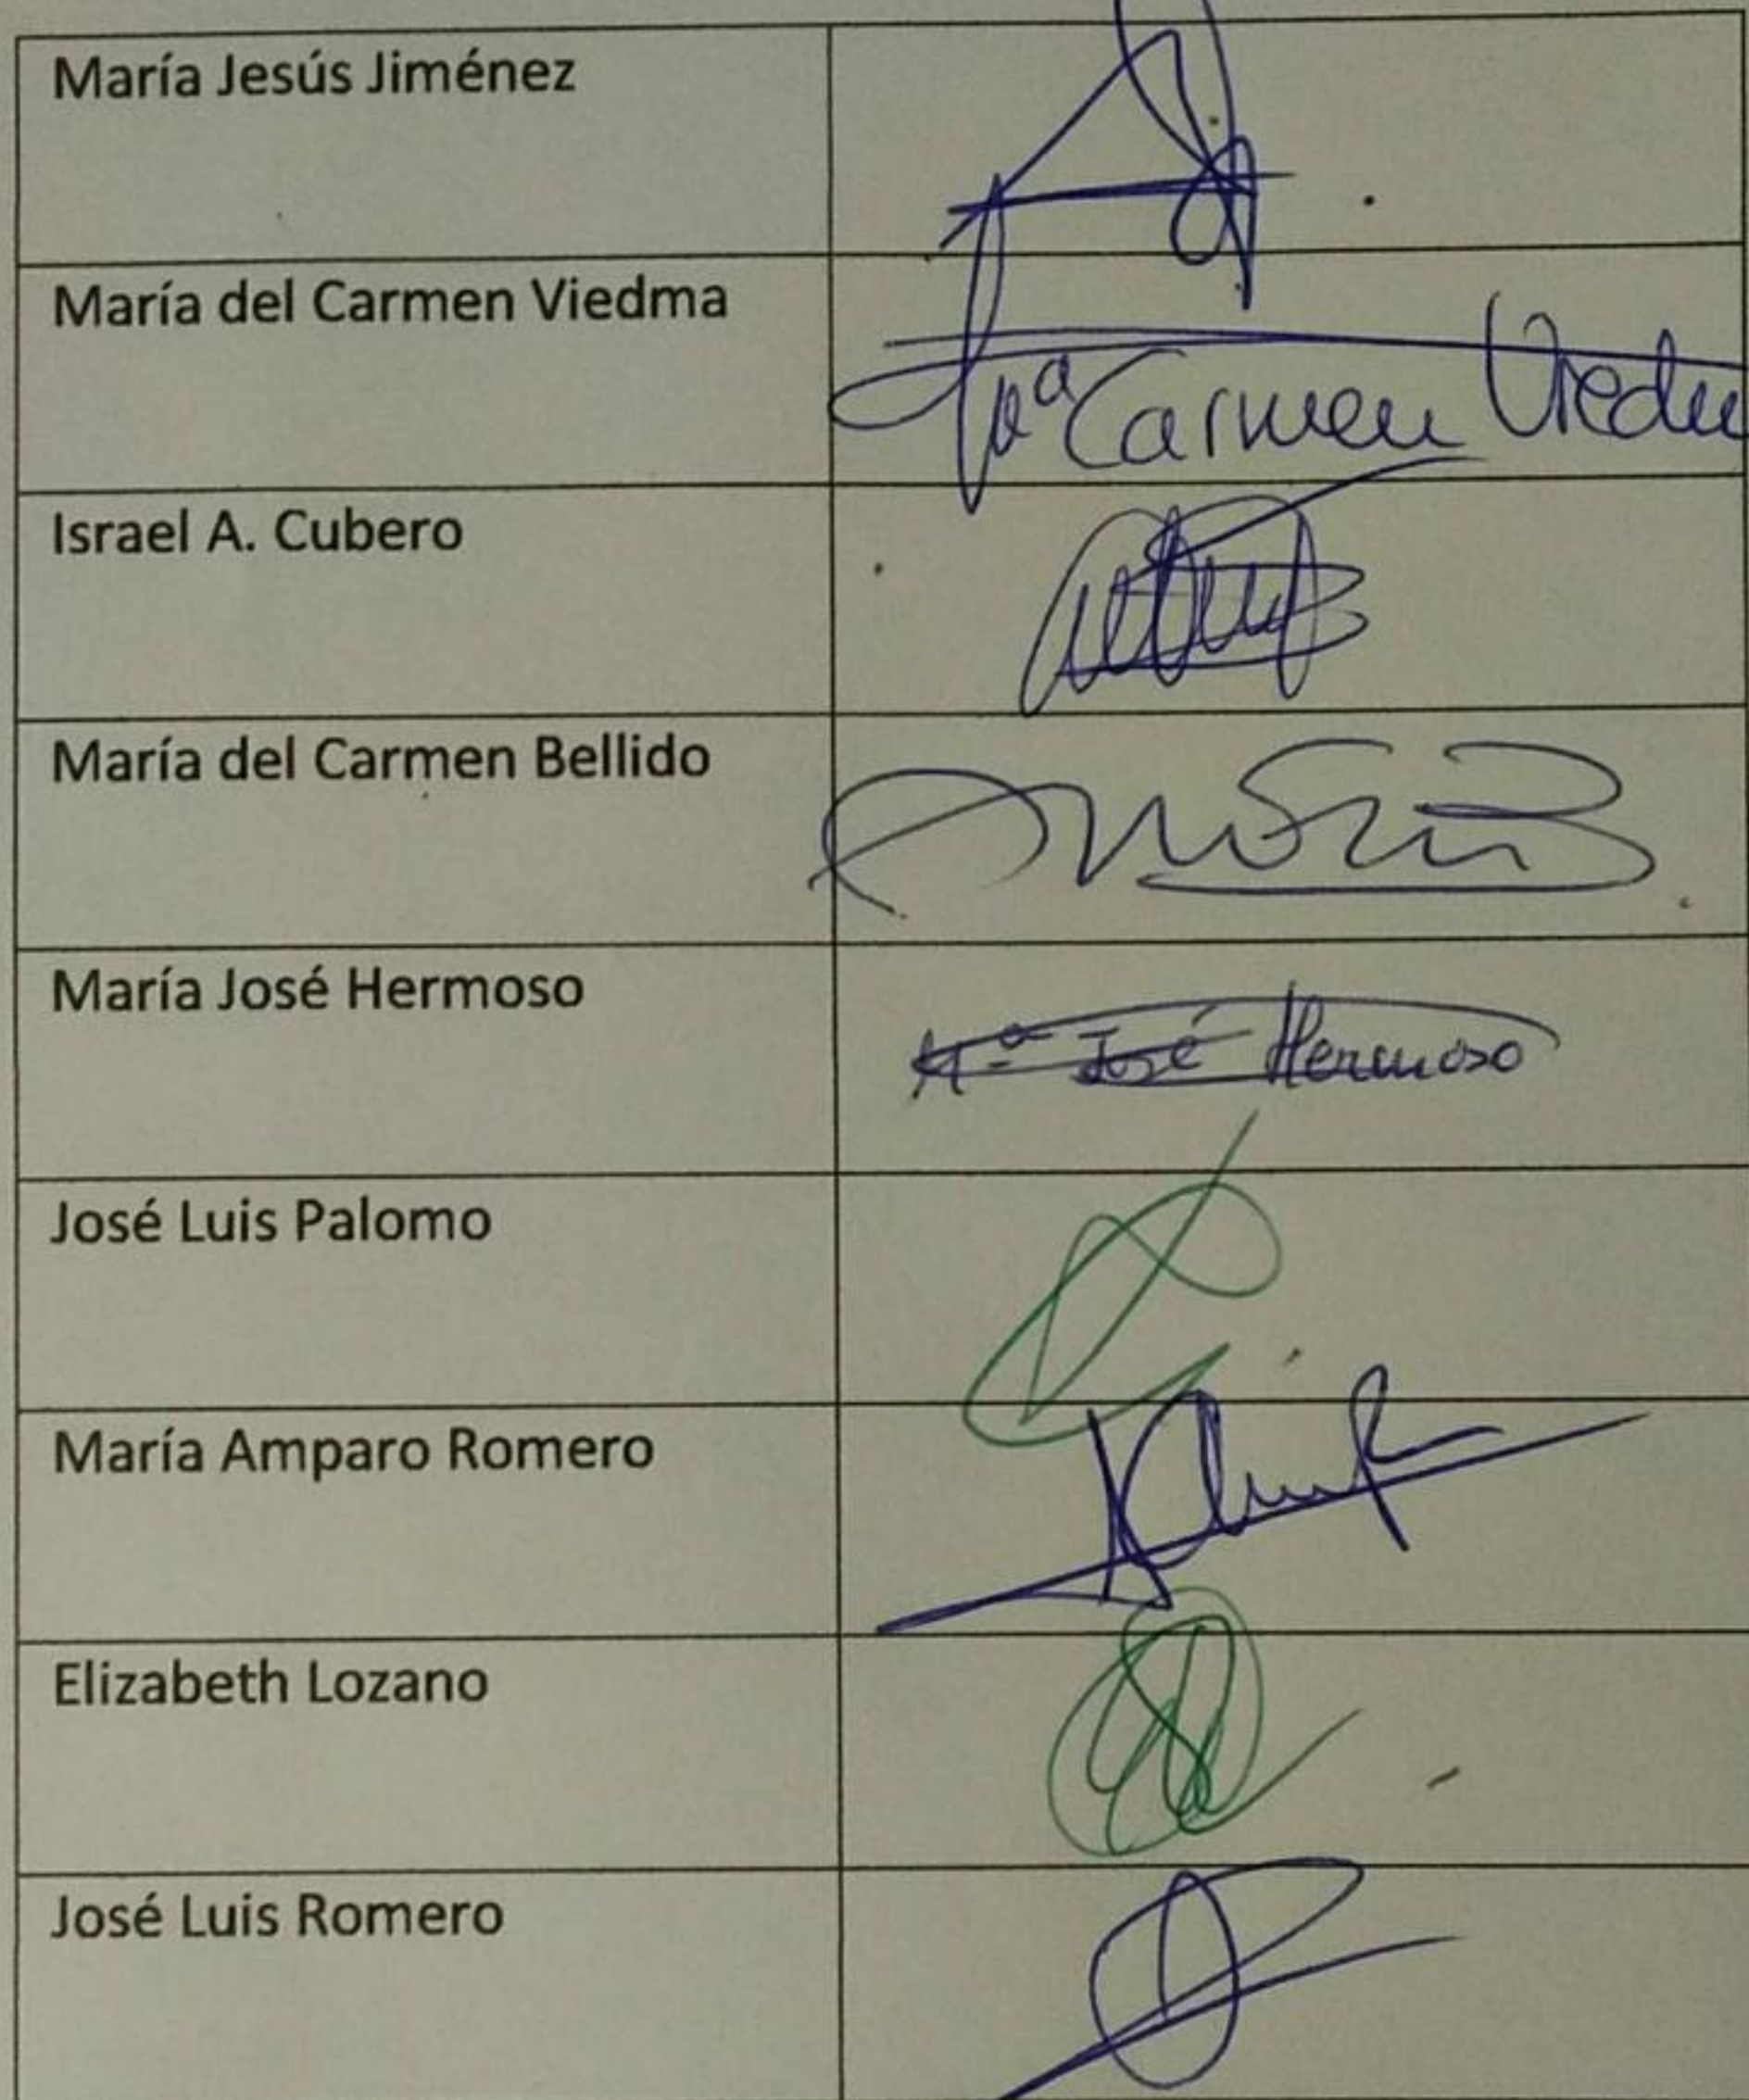 María Jesús Jiménez
María del Carmen Viedma
Mª Carmen Viedm
Israel A. Cubero
María del Carmen Bellido
María José Hermoso
Mª José Hermoso
José Luis Palomo
María Amparo Romero
Elizabeth Lozano
José Luis Romero